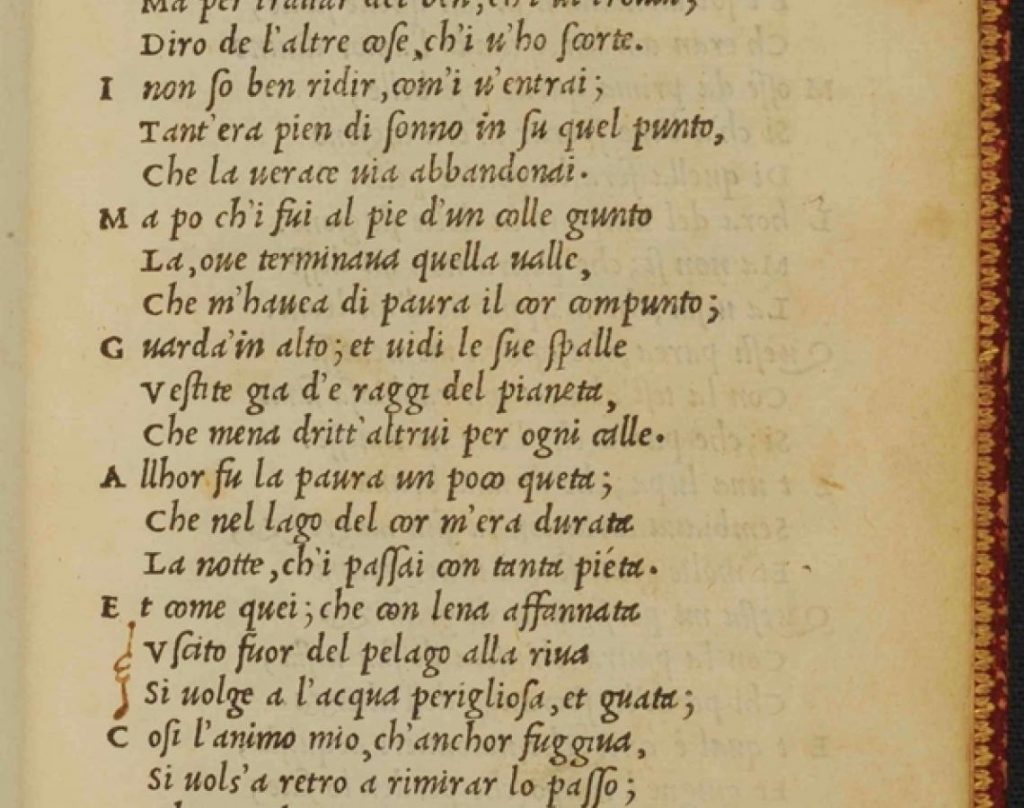 Ma per trattar del ben, ch'i ui trouai;
Diro de l'altre cose, ch'i u'ho scorte.
I non so ben ridir, com'i u'entrai;
Tant'era pien di sonno in su quel punto,
Che la uerace uia abbandonai.
M a po ch'i fui al pie d'un colle giunto
La, oue terminaua quella ualle,
Che m'hauea di paura il cor compunto;
G uarda'in alto; et uidi le sue spalle
Vestite gia d'e raggi del pianeta,
Che mena dritt'altrui per ogni calle.
A llhor fu la paura un poco queta;
Che nel lago del cor m'era durata
La notte, ch'i passai con tanta piéta.
E t come quei; che con lena affannata
Vscito fuor del pelago alla riua
Si uolge a l'acqua perigliosa, et guata;
C osi l'animo mio, ch'anchor fuggiua,
Si uols'a retro a rimirar lo passo;